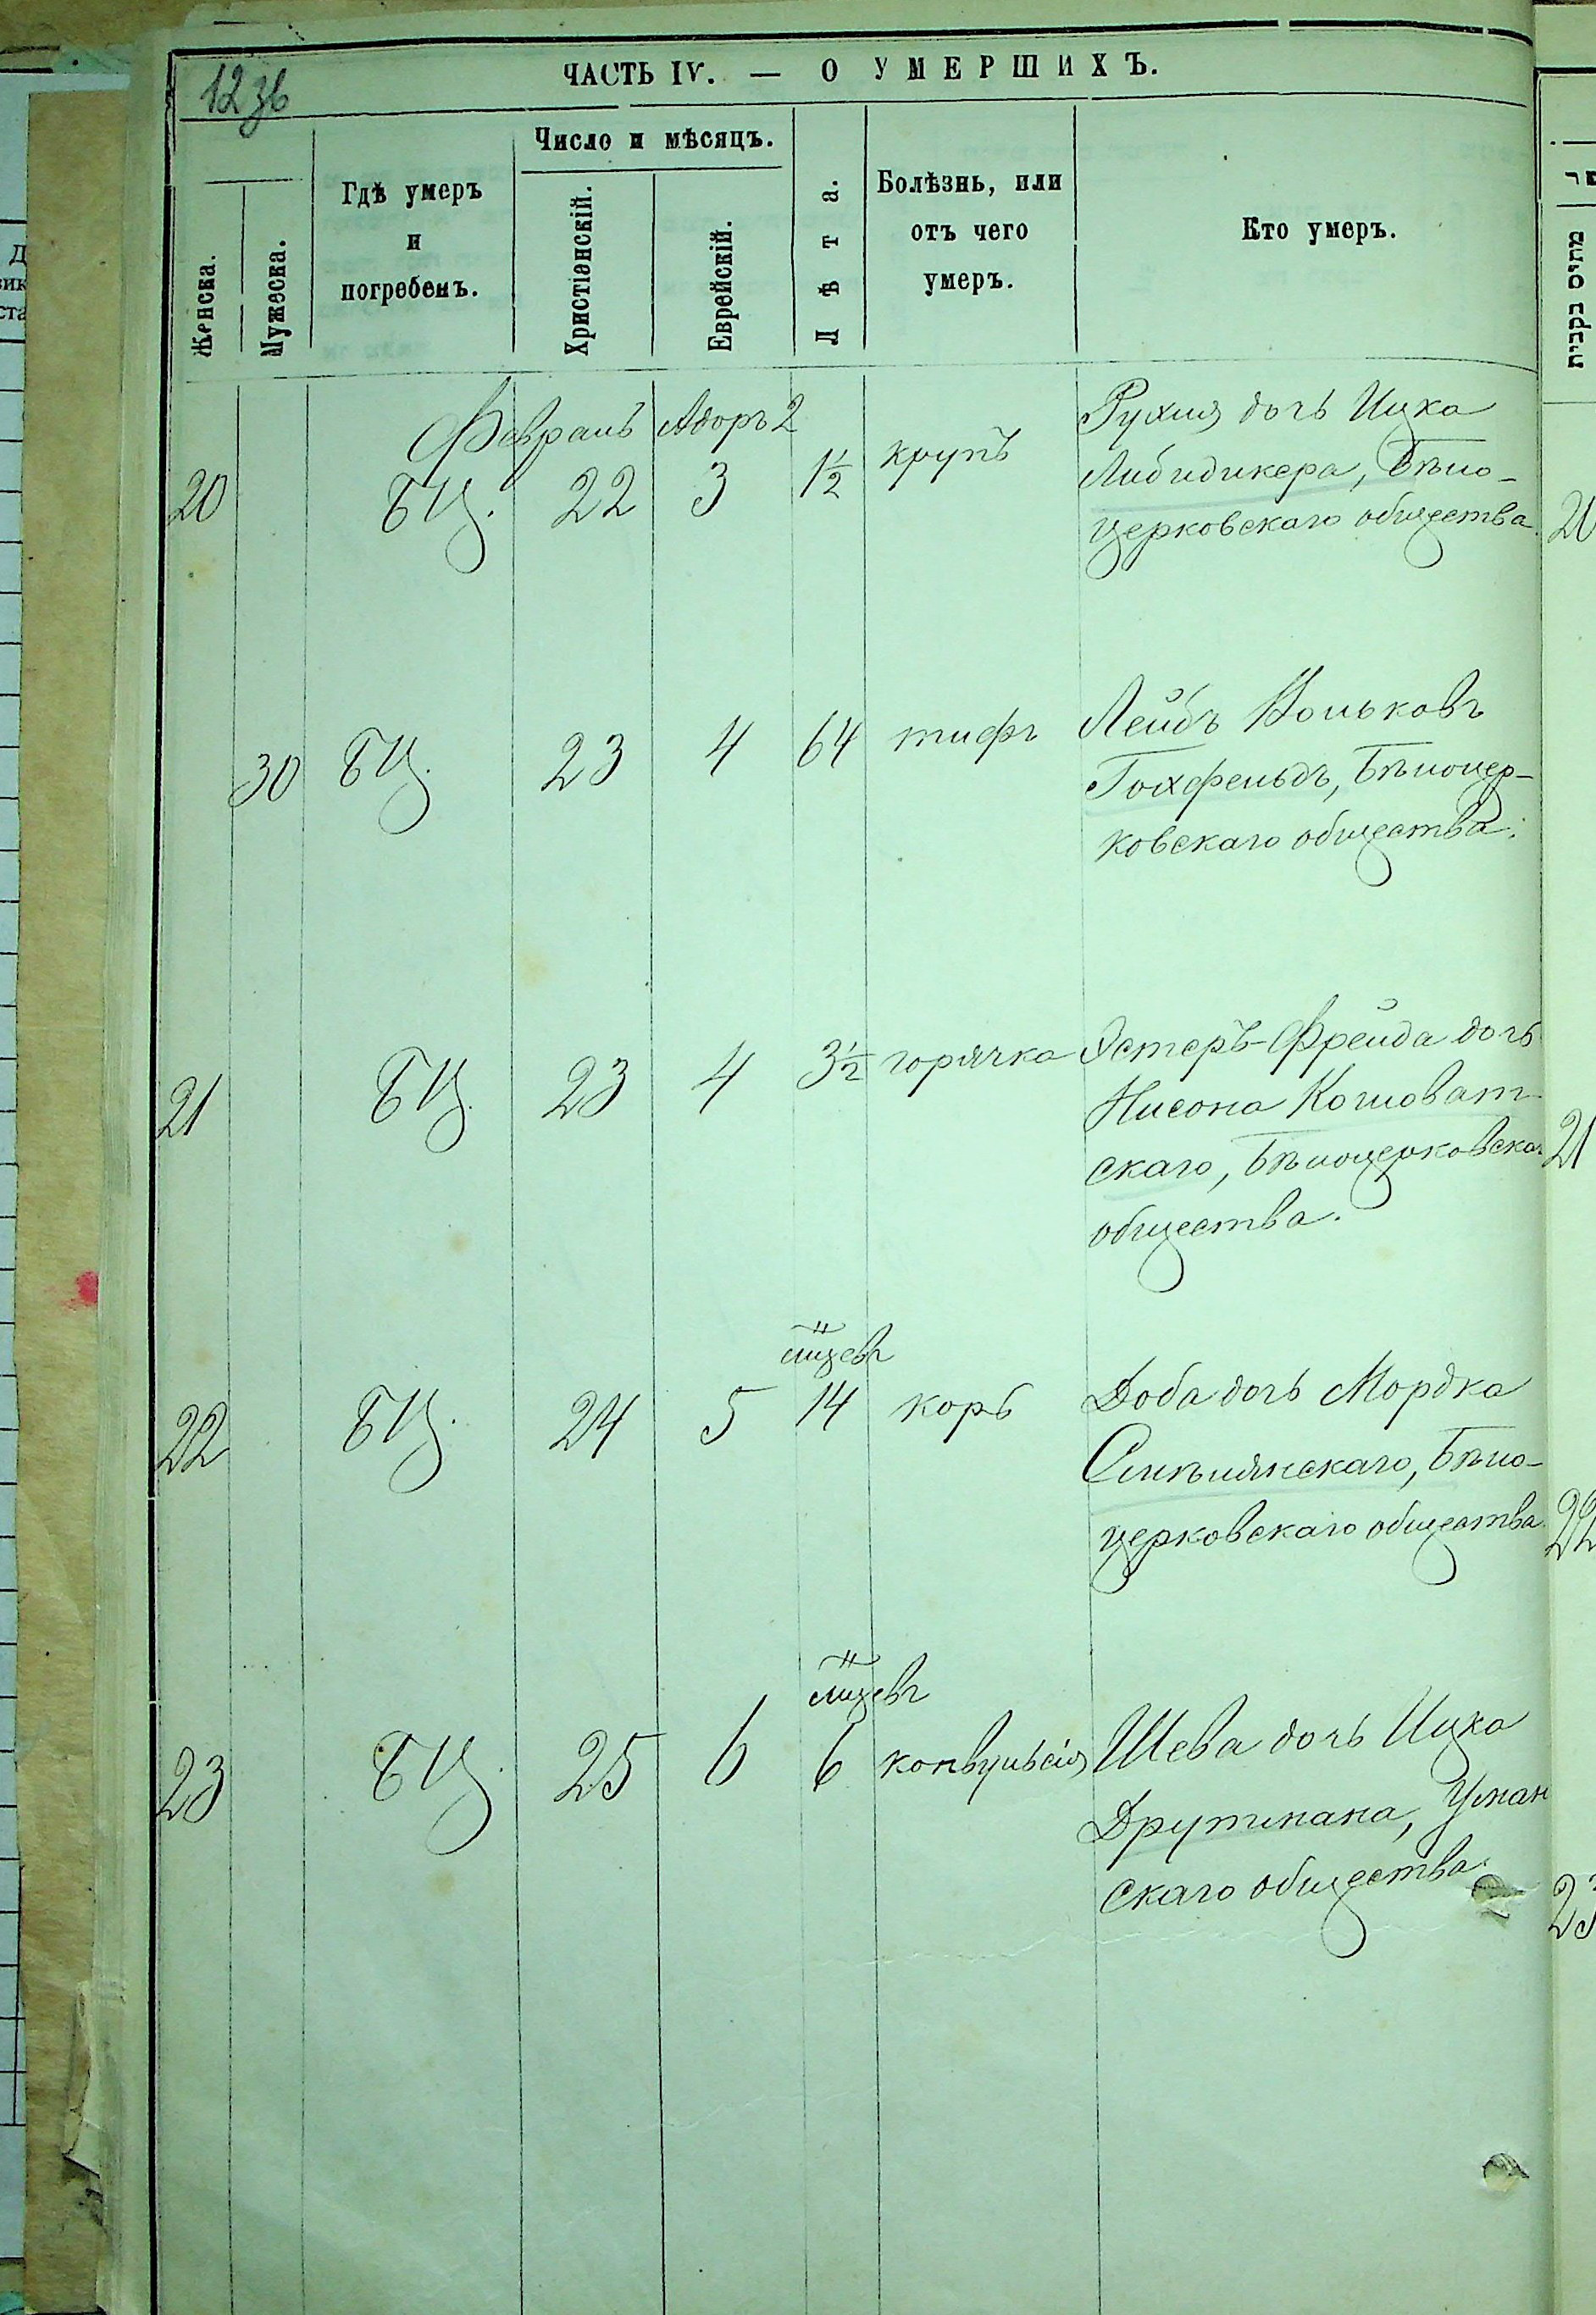 12 зв
ЧАСТЬ IV. — О УМЕРШИХЪ.
Женска.
Мужеска.
Гдѣ умеръ
и
погребенъ.
Число и мѣсяцъ.
Христіанскій.
Еврейскій.
Лѣта.
Болѣзнь, или
отъ чего
умеръ.
Кто умеръ.
Февраль Адоръ 2
20 БЦ. 22 3 1½ крупъ Рухля дочь Ицка
Либидикера, Бѣло-
церковскаго общества.
30 БЦ. 23 4 64 тифъ Лейбъ Воньковъ
Гохфельдъ, Бѣлоцер-
ковскаго общества.
21 БЦ. 23 4 3½ горячка Эстеръ-Фрейда дочь
Нисона Кошоват-
скаго, Бѣлоцерковскаго
общества.
мцевъ
22 БЦ. 24 5 14 корь Доба дочь Мордка
Смѣлянскаго, Бѣло-
церковскаго общества.
мцевъ
23 БЦ. 25 6 6 конвульсія Шева дочь Ицка
Друтмана, Уман
скаго общества.
מתים בקבית
20
21
22
23